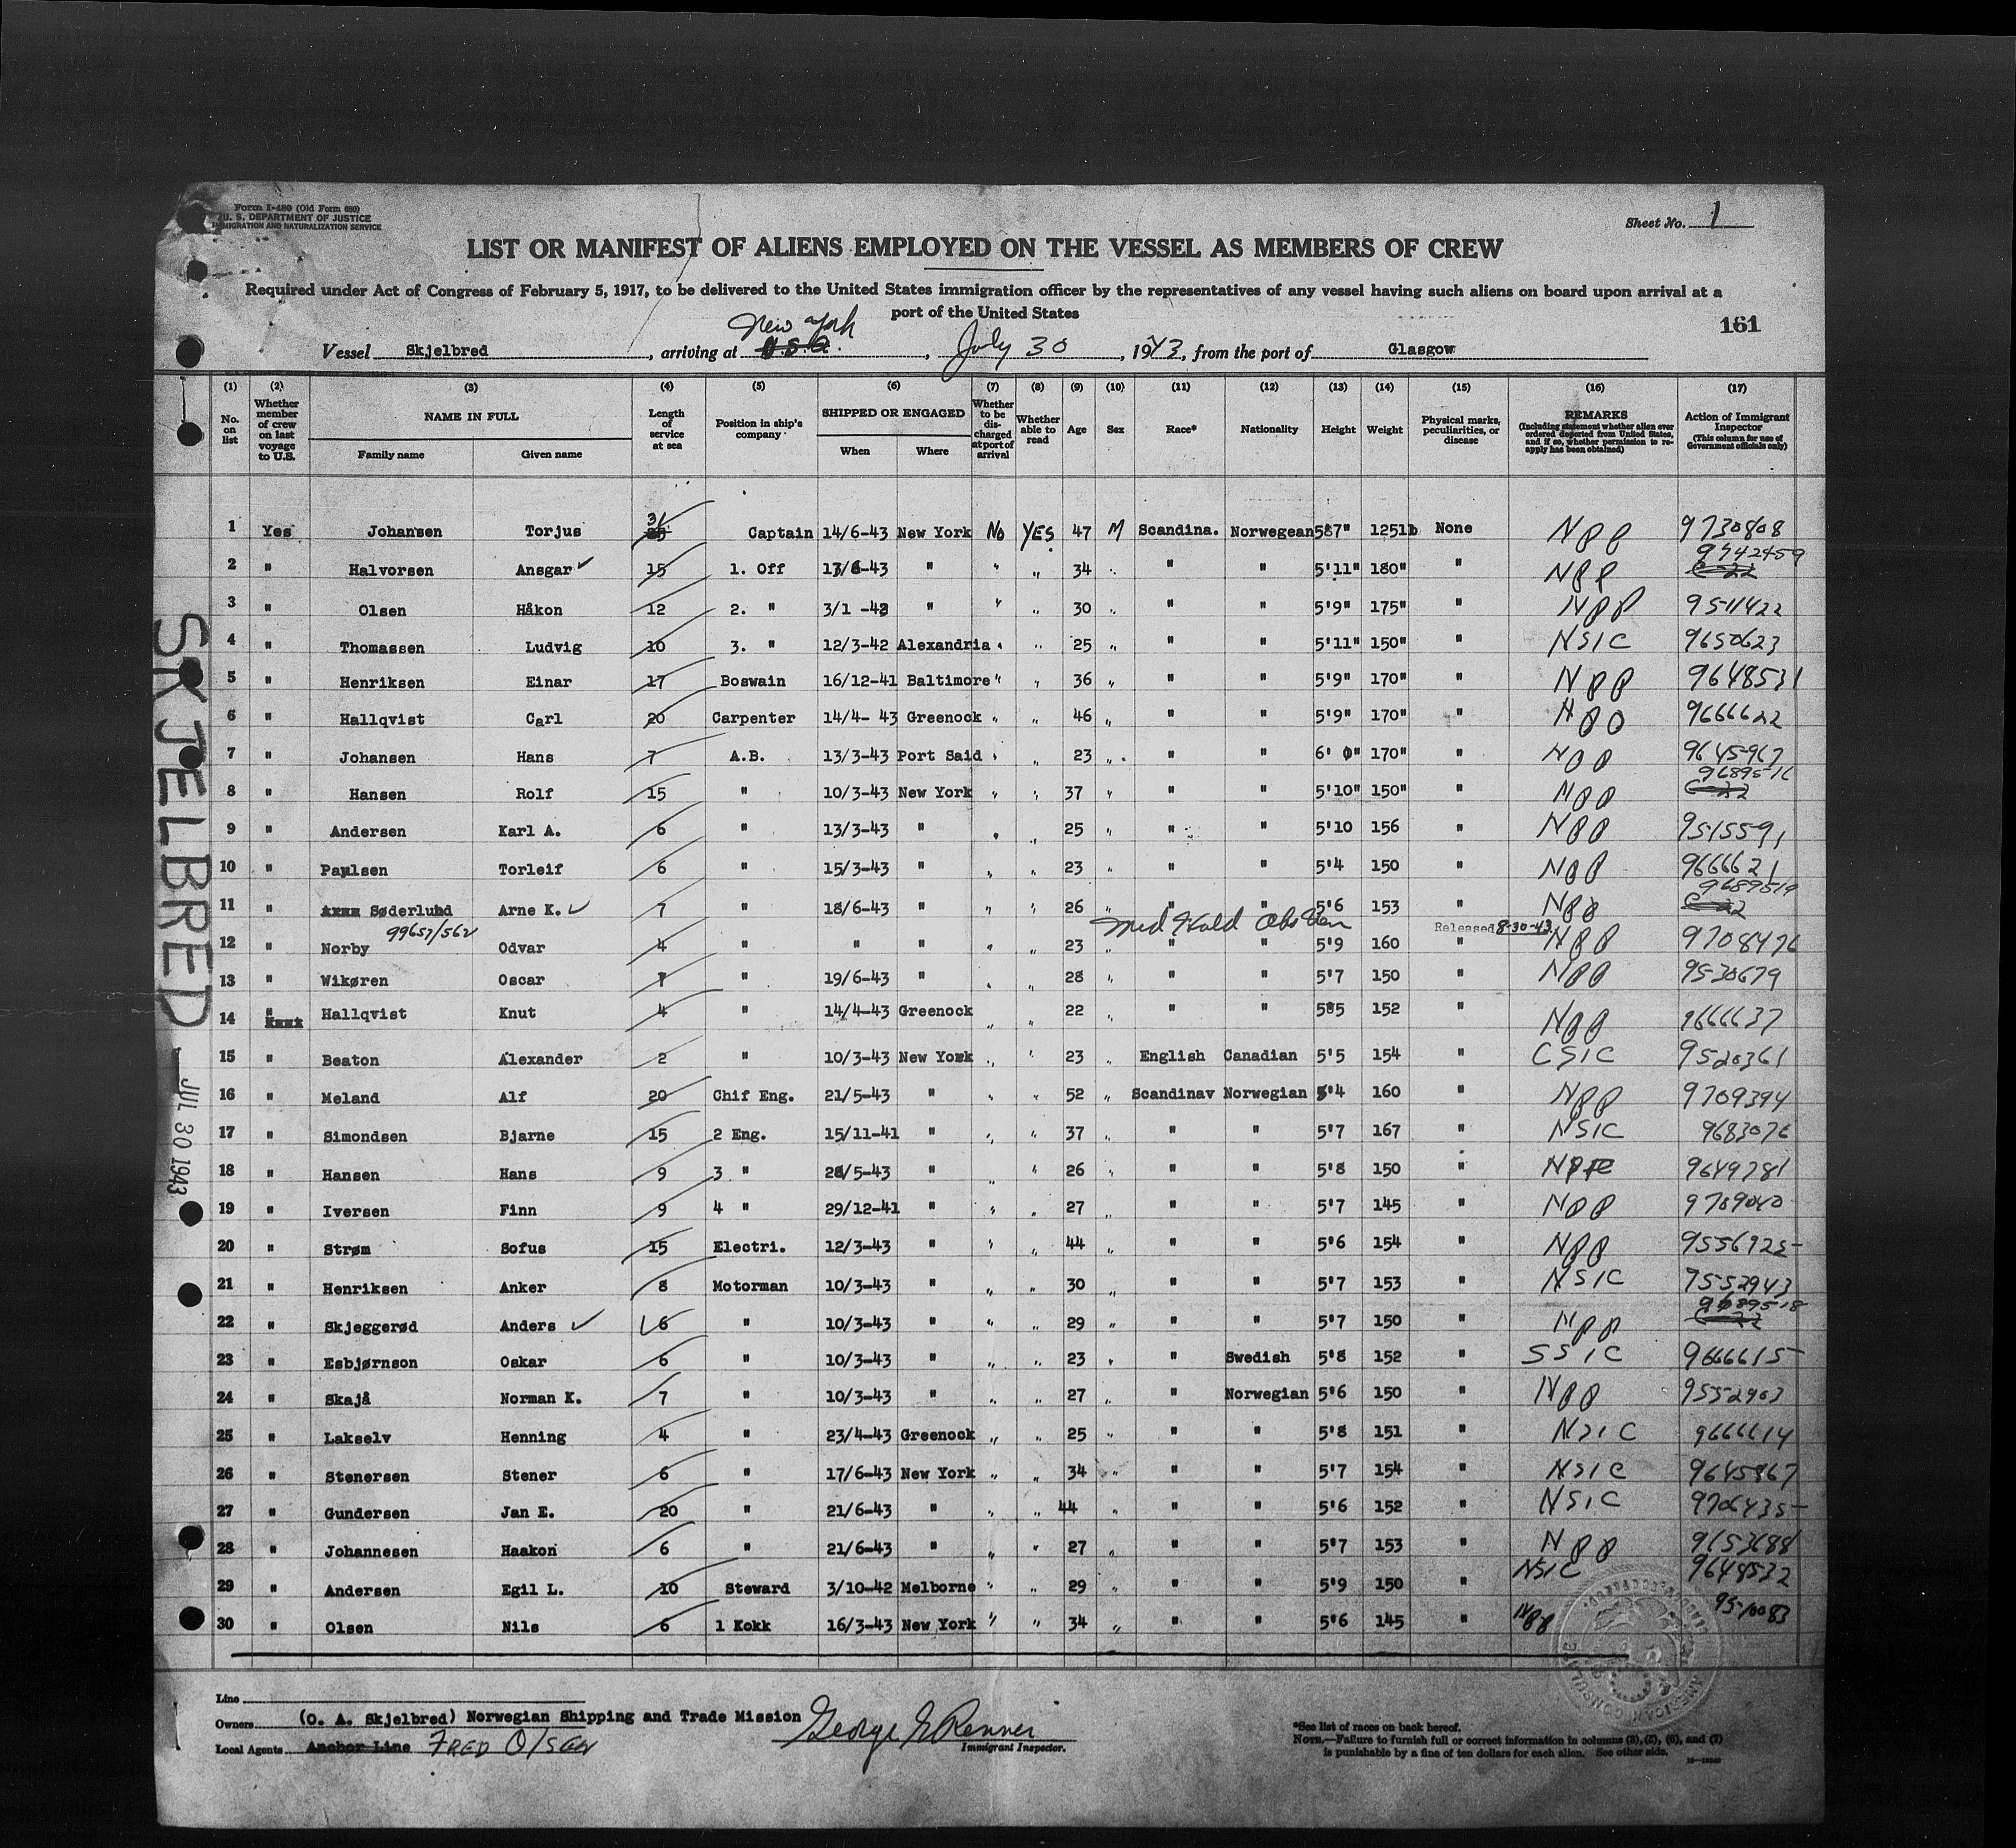 Form I-480 (Old Form 680)
U. S. DEPARTMENT OF JUSTICE
IMMIGRATION AND NATURALIZATION SERVICE
Sheet No. 1
LIST OR MANIFEST OF ALIENS EMPLOYED ON THE VESSEL AS MEMBERS OF CREW
Required under Act of Congress of February 5, 1917, to be delivered to the United States immigration officer by the representatives of any vessel having such aliens on board upon arrival at a
port of the United States
161
New York
Vessel Skjelbred, arriving at U.S.A., July 30, 1943, from the port of Glasgow
(1) (2) (3) (4) (5) (6) (7) (8) (9) (10) (11) (12) (13) (14) (15) (16) (17)
No. on list
Whether member of crew on last voyage to U.S.
NAME IN FULL
Family name
Given name
Length of service at sea
Position in ship's company
SHIPPED OR ENGAGED
When
Where
Whether to be discharged at port of arrival
Whether able to read
Age
Sex
Race*
Nationality
Height
Weight
Physical marks, peculiarities, or disease
REMARKS
(Including statement whether alien ever ordered deported from United States, and if so, whether permission to reapply has been obtained)
Action of Immigrant Inspector
(This column for use of Government officials only)
1 Yes Johansen Torjus 31 Captain 14/6-43 New York No YES 47 M Scandina. Norwegean 587" 125lb None NPP 9730808
2 " Halvorsen Ansgar ✓ 15 1. Off 17/6-43 " " " 34 " " " 5'11" 180" " NPP 9742459
3 " Olsen Håkon 12 2. " 3/1 -43 " " " 30 " " " 5'9" 175" " NPP 9511422
4 " Thomassen Ludvig 10 3. " 12/3-42 Alexandria " " 25 " " " 5'11" 150" " NSIC 9650623
5 " Henriksen Einar 17 Boswain 16/12-41 Baltimore " " 36 " " " 5'9" 170" " NPP 9648531
6 " Hallqvist Carl 20 Carpenter 14/4- 43 Greenock " " 46 " " " 5'9" 170" " NPP 9666622
7 " Johansen Hans 7 A.B. 13/3-43 Port Said " " 23 " " " 6' 0" 170" " NPP 9645967
8 " Hansen Rolf 15 " 10/3-43 New York " " 37 " " " 5'10" 150" " NPP 9689516
9 " Andersen Karl A. 6 " 13/3-43 " " " 25 " " " 5'10 156 " NPP 9515591
10 " Paulsen Torleif 6 " 15/3-43 " " " 23 " " " 5'4 150 " NPP 9666621
11 " Søderlund Arne K. ✓ 7 " 18/6-43 " " " 26 " " " 5'6 153 " NPP 9689519
99657/562 Med Hold Released 8-30-43
12 " Norby Odvar 4 " " " " " 23 " " " 5'9 160 " NPP 9708476
13 " Wikøren Oscar 7 " 19/6-43 " " " 28 " " " 5'7 150 " NPP 9530679
14 " Hallqvist Knut 4 " 14/4-43 Greenock " " 22 " " " 585 152 " NPP 9666637
15 " Beaton Alexander 2 " 10/3-43 New York " " 23 " English Canadian 5'5 154 " CSIC 9520361
16 " Meland Alf 20 Chif Eng. 21/5-43 " " " 52 " Scandinav Norwegian 5'4 160 " NPP 9709394
17 " Simondsen Bjarne 15 2 Eng. 15/11-41 " " " 37 " " " 5'7 167 " NSIC 9683076
18 " Hansen Hans 9 3 " 28/5-43 " " " 26 " " " 5'8 150 " 9649781
19 " Iversen Finn 9 4 " 29/12-41 " " " 27 " " " 5'7 145 " NPP 9709040
20 " Strøm Sofus 15 Electri. 12/3-43 " " " 44 " " " 5'6 154 " NPP 9556725
21 " Henriksen Anker 8 Motorman 10/3-43 " " " 30 " " " 5'7 153 " NSIC 9552943
22 " Skjeggerød Anders ✓ 6 " 10/3-43 " " " 29 " " " 5'7 150 " NPP 9689518
23 " Esbjørnson Oskar 6 " 10/3-43 " " " 23 " " Swedish 5'8 152 " SSIC 9666615
24 " Skajå Norman K. 7 " 10/3-43 " " " 27 " " Norwegian 5'6 150 " NPP 9552903
25 " Lakselv Henning 4 " 23/4-43 Greenock " " 25 " " " 5'8 151 " NSIC 9666614
26 " Stenersen Stener 6 " 17/6-43 New York " " 34 " " " 5'7 154 " NSIC 9645867
27 " Gundersen Jan E. 20 " 21/6-43 " " " 44 " " " 5'6 152 " NSIC 9706435
28 " Johannesen Haakon 6 " 21/6-43 " " " 27 " " " 5'7 153 " NPP 9653688
29 " Andersen Egil L. 10 Steward 3/10-42 Melborne " " 29 " " " 5'9 150 " NSIC 9648532
30 " Olsen Nils 6 1 Kokk 16/3-43 New York " " 34 " " " 5'6 145 " NPP 9510083
SKJELBRED
JUL 30 1943
Line
Owners (O. A. Skjelbred) Norwegian Shipping and Trade Mission
Local Agents Anchor Line FRED Olsen
George E Renner
Immigrant Inspector.
*See list of races on back hereof.
NOTE.—Failure to furnish full or correct information in columns (3), (5), (6), and (7)
is punishable by a fine of ten dollars for each alien. See other side.